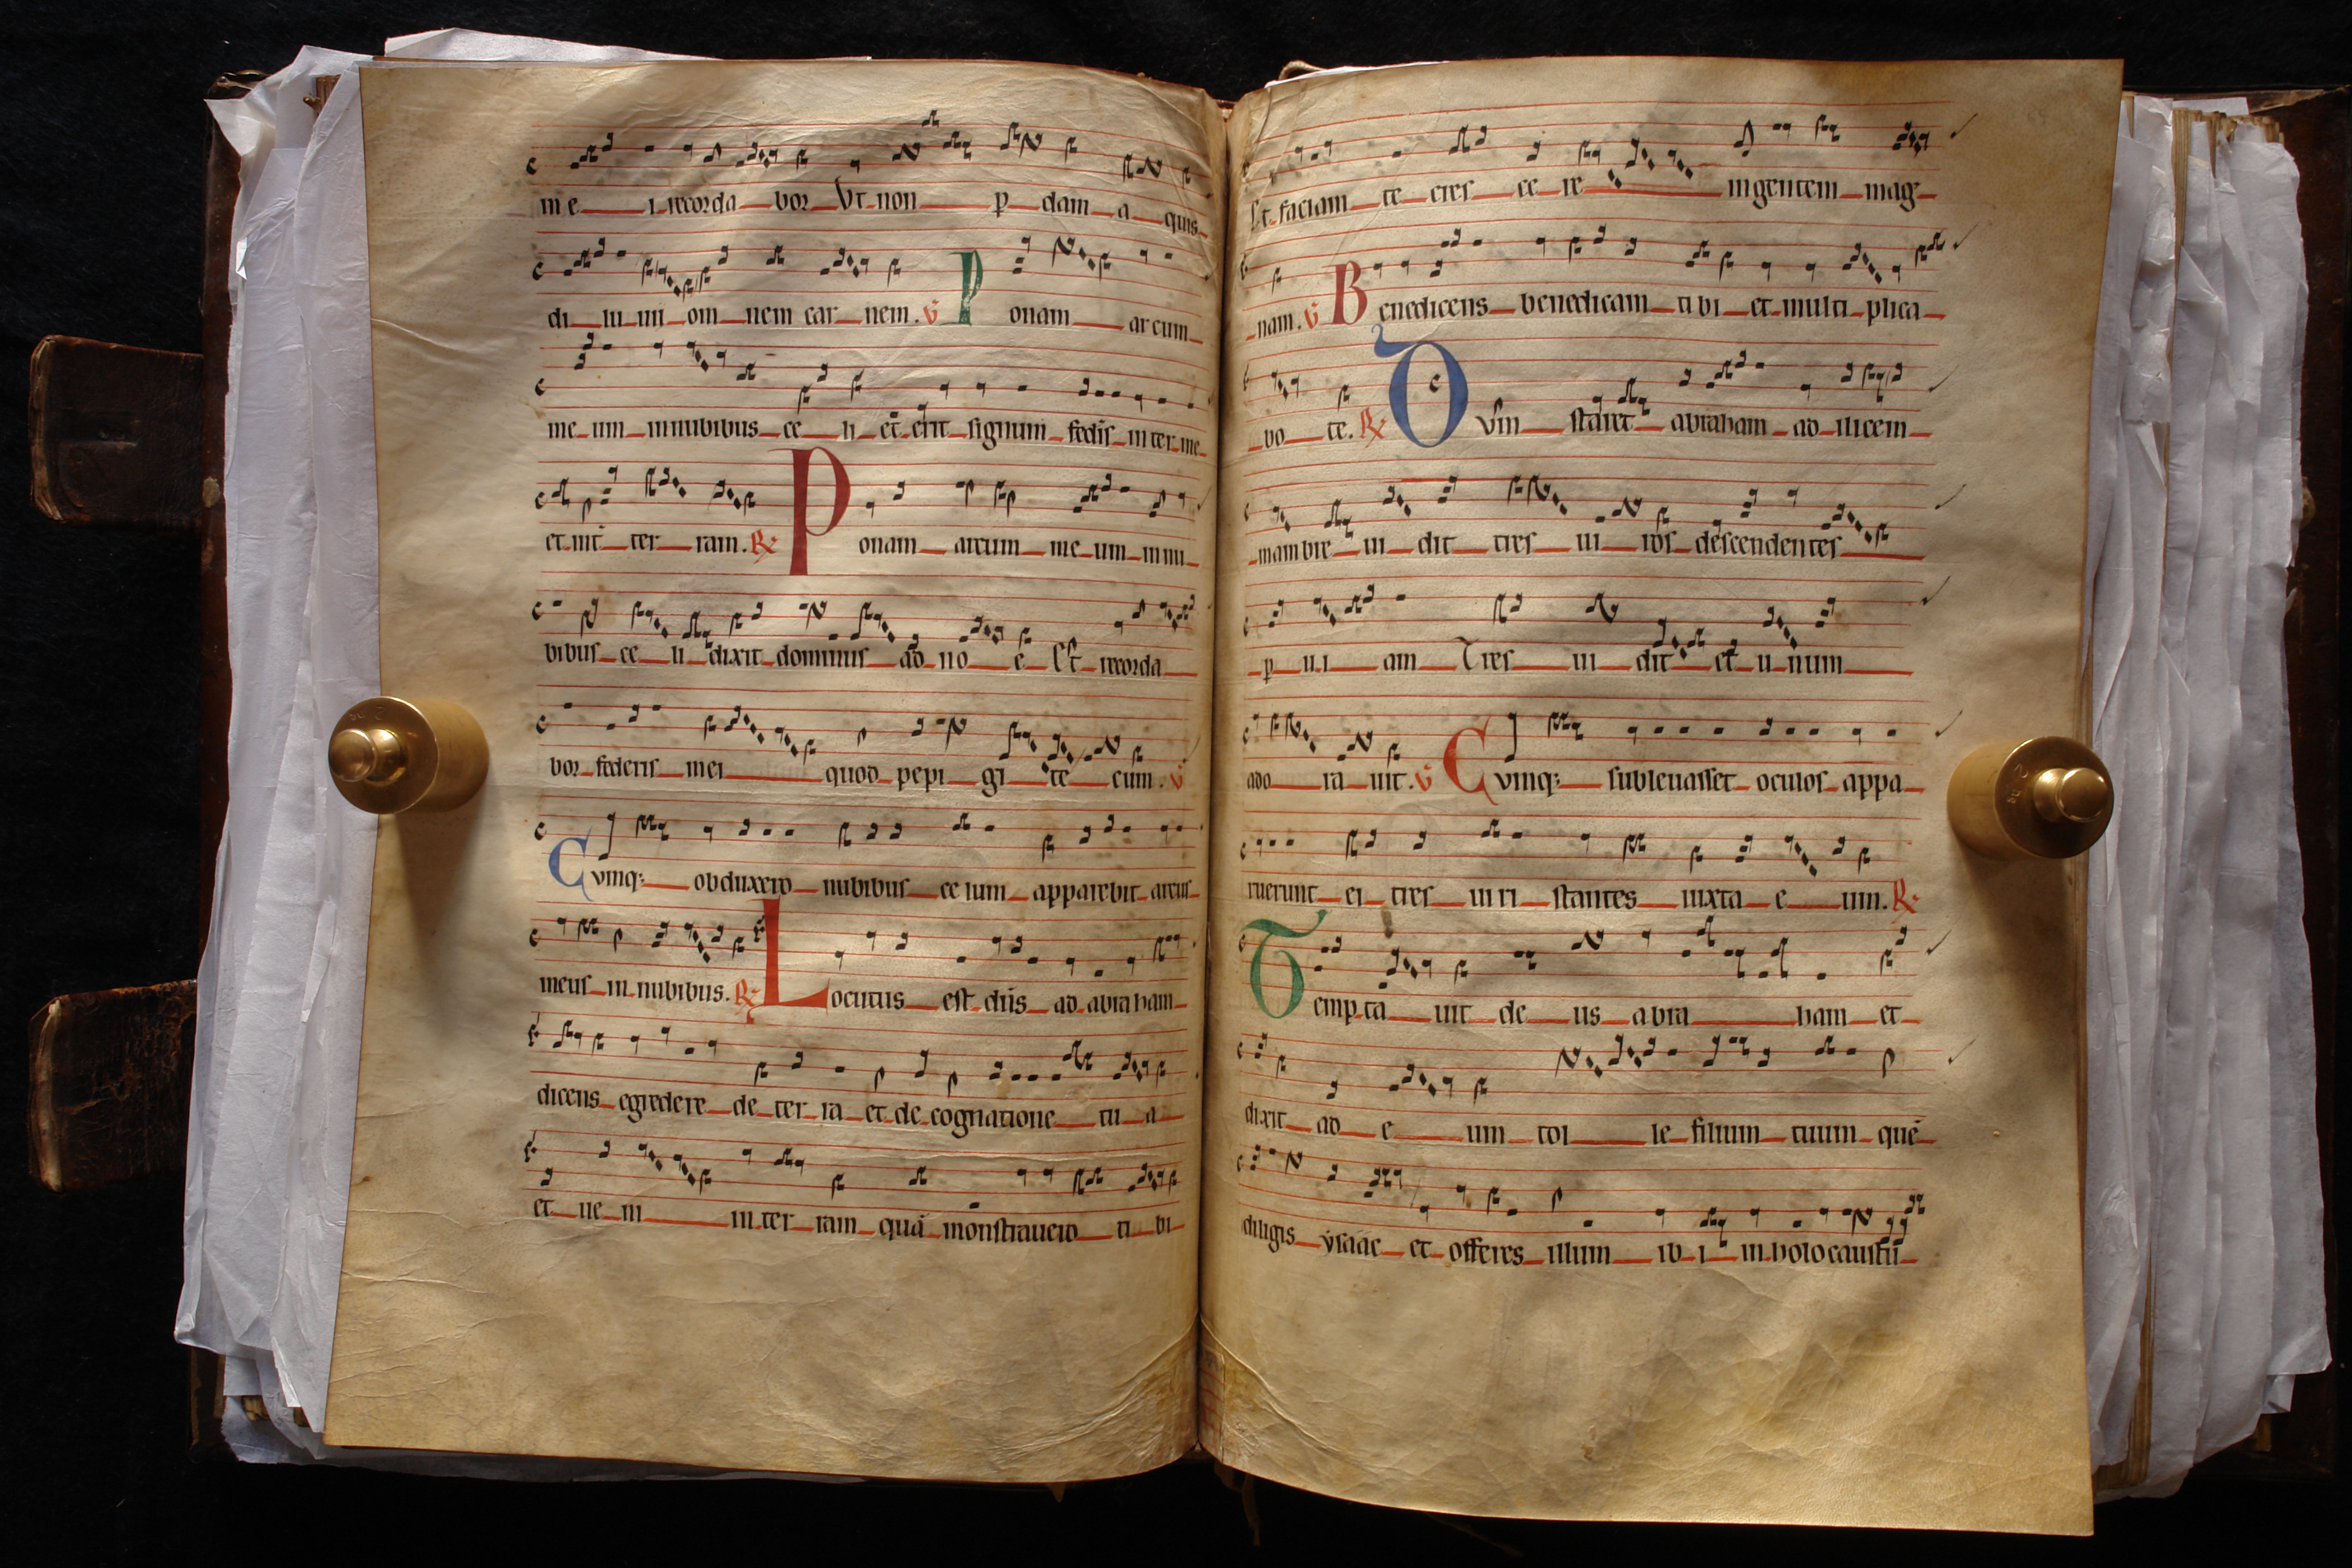 me i recorda bor Ut non p dam a quis
di lu uii om nem car nem. V Ponam arcum
me um in nubibus ce li et erit signum fedis inter me
et int ter ram. R Ponam arcum me um in nu
bibus ce li dixit dominus ad no e Et recorda
bor federis mei quod pepi gi te cum. V
Cvinq; obduxero nubibus ce lum apparebit arcus
meus in nubibus. R Locutus est dns ad abraham
dicens egredere de ter ra et de cognatione tu a
et ue ni in ter ram quā monstrauero ti bi
Et faciam te cres ce re in gentem mag
nam. V Benedicens benedicam ti bi et multi plica
bo te. R Dvm staret abraham ad ilicem
mambre ui dit tres ui ros descendentes
p ui am Tres ui dit et u num
ado ra uit. V Cvinq; subleuasset oculos appa
ruerunt ei tres uiri stantes iuxta e um. R
Tempta uit de us abra ham et
dixit ad e um tol le filium tuum quē
diligis ysaac et offeres illum ib i in holocaustū